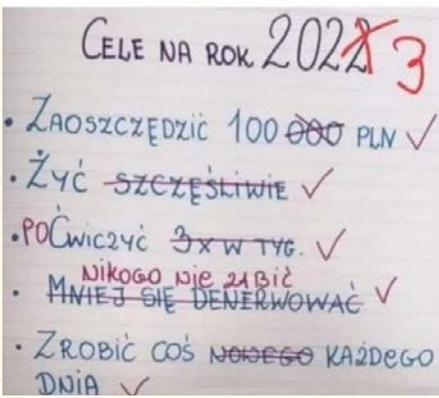 CELE NA ROK 2022 3
• ZAOSZCZĘDZIĆ 100 000 PLN ✓
• ŻYĆ SZCZĘŚLIWIE ✓
• POĆWICZYĆ 3X W TYG. ✓
NIKOGO NIE ZABIĆ
• MNIEJ SIĘ DENERWOWAĆ ✓
• ZROBIĆ COŚ NOWEGO KAŻDEGO
DNIA ✓